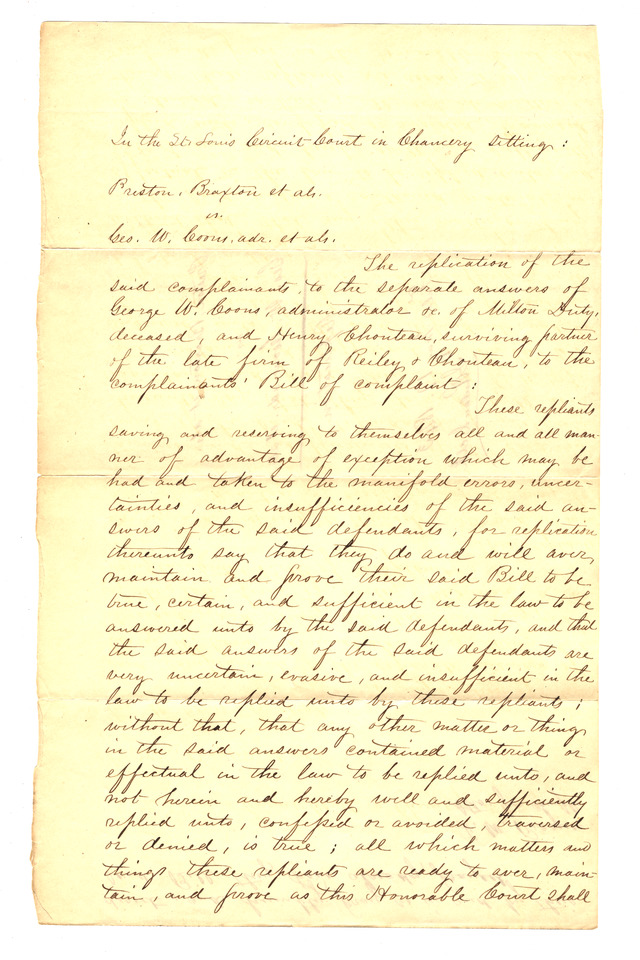 In the St. Louis Circuit Court in Chancery sitting:
Preston, Braxton et als.
vs.
Geo. W. Coons, adr. et als.
The replication of the
said complainants to the separate answers of
George W. Coons, administrator &c. of Milton Duty,
deceased, and Henry Chouteau, surviving partner
of the late firm of Reiley & Chouteau, to the
complainants' Bill of complaint:
These repliants
saving and reserving to themselves all and all man-
ner of advantage of exception which may be
had and taken to the manifold errors, uncer-
tainties, and insufficiencies of the said an-
swers of the said defendants, for replication
thereunto say that they do and will aver,
maintain and prove their said Bill to be
true, certain, and sufficient in the law to be
answered unto by the said defendants, and that
the said answers of the said defendants are
very uncertain, evasive, and insufficient in the
law to be replied unto by these repliants;
without that, that any other matter or thing
in the said answers contained material or
effectual in the law to be replied unto, and
not herein and hereby well and sufficiently
replied unto, confessed or avoided, traversed
or denied, is true; all which matters and
things these repliants are ready to aver, main-
tain, and prove as this Honorable Court shall